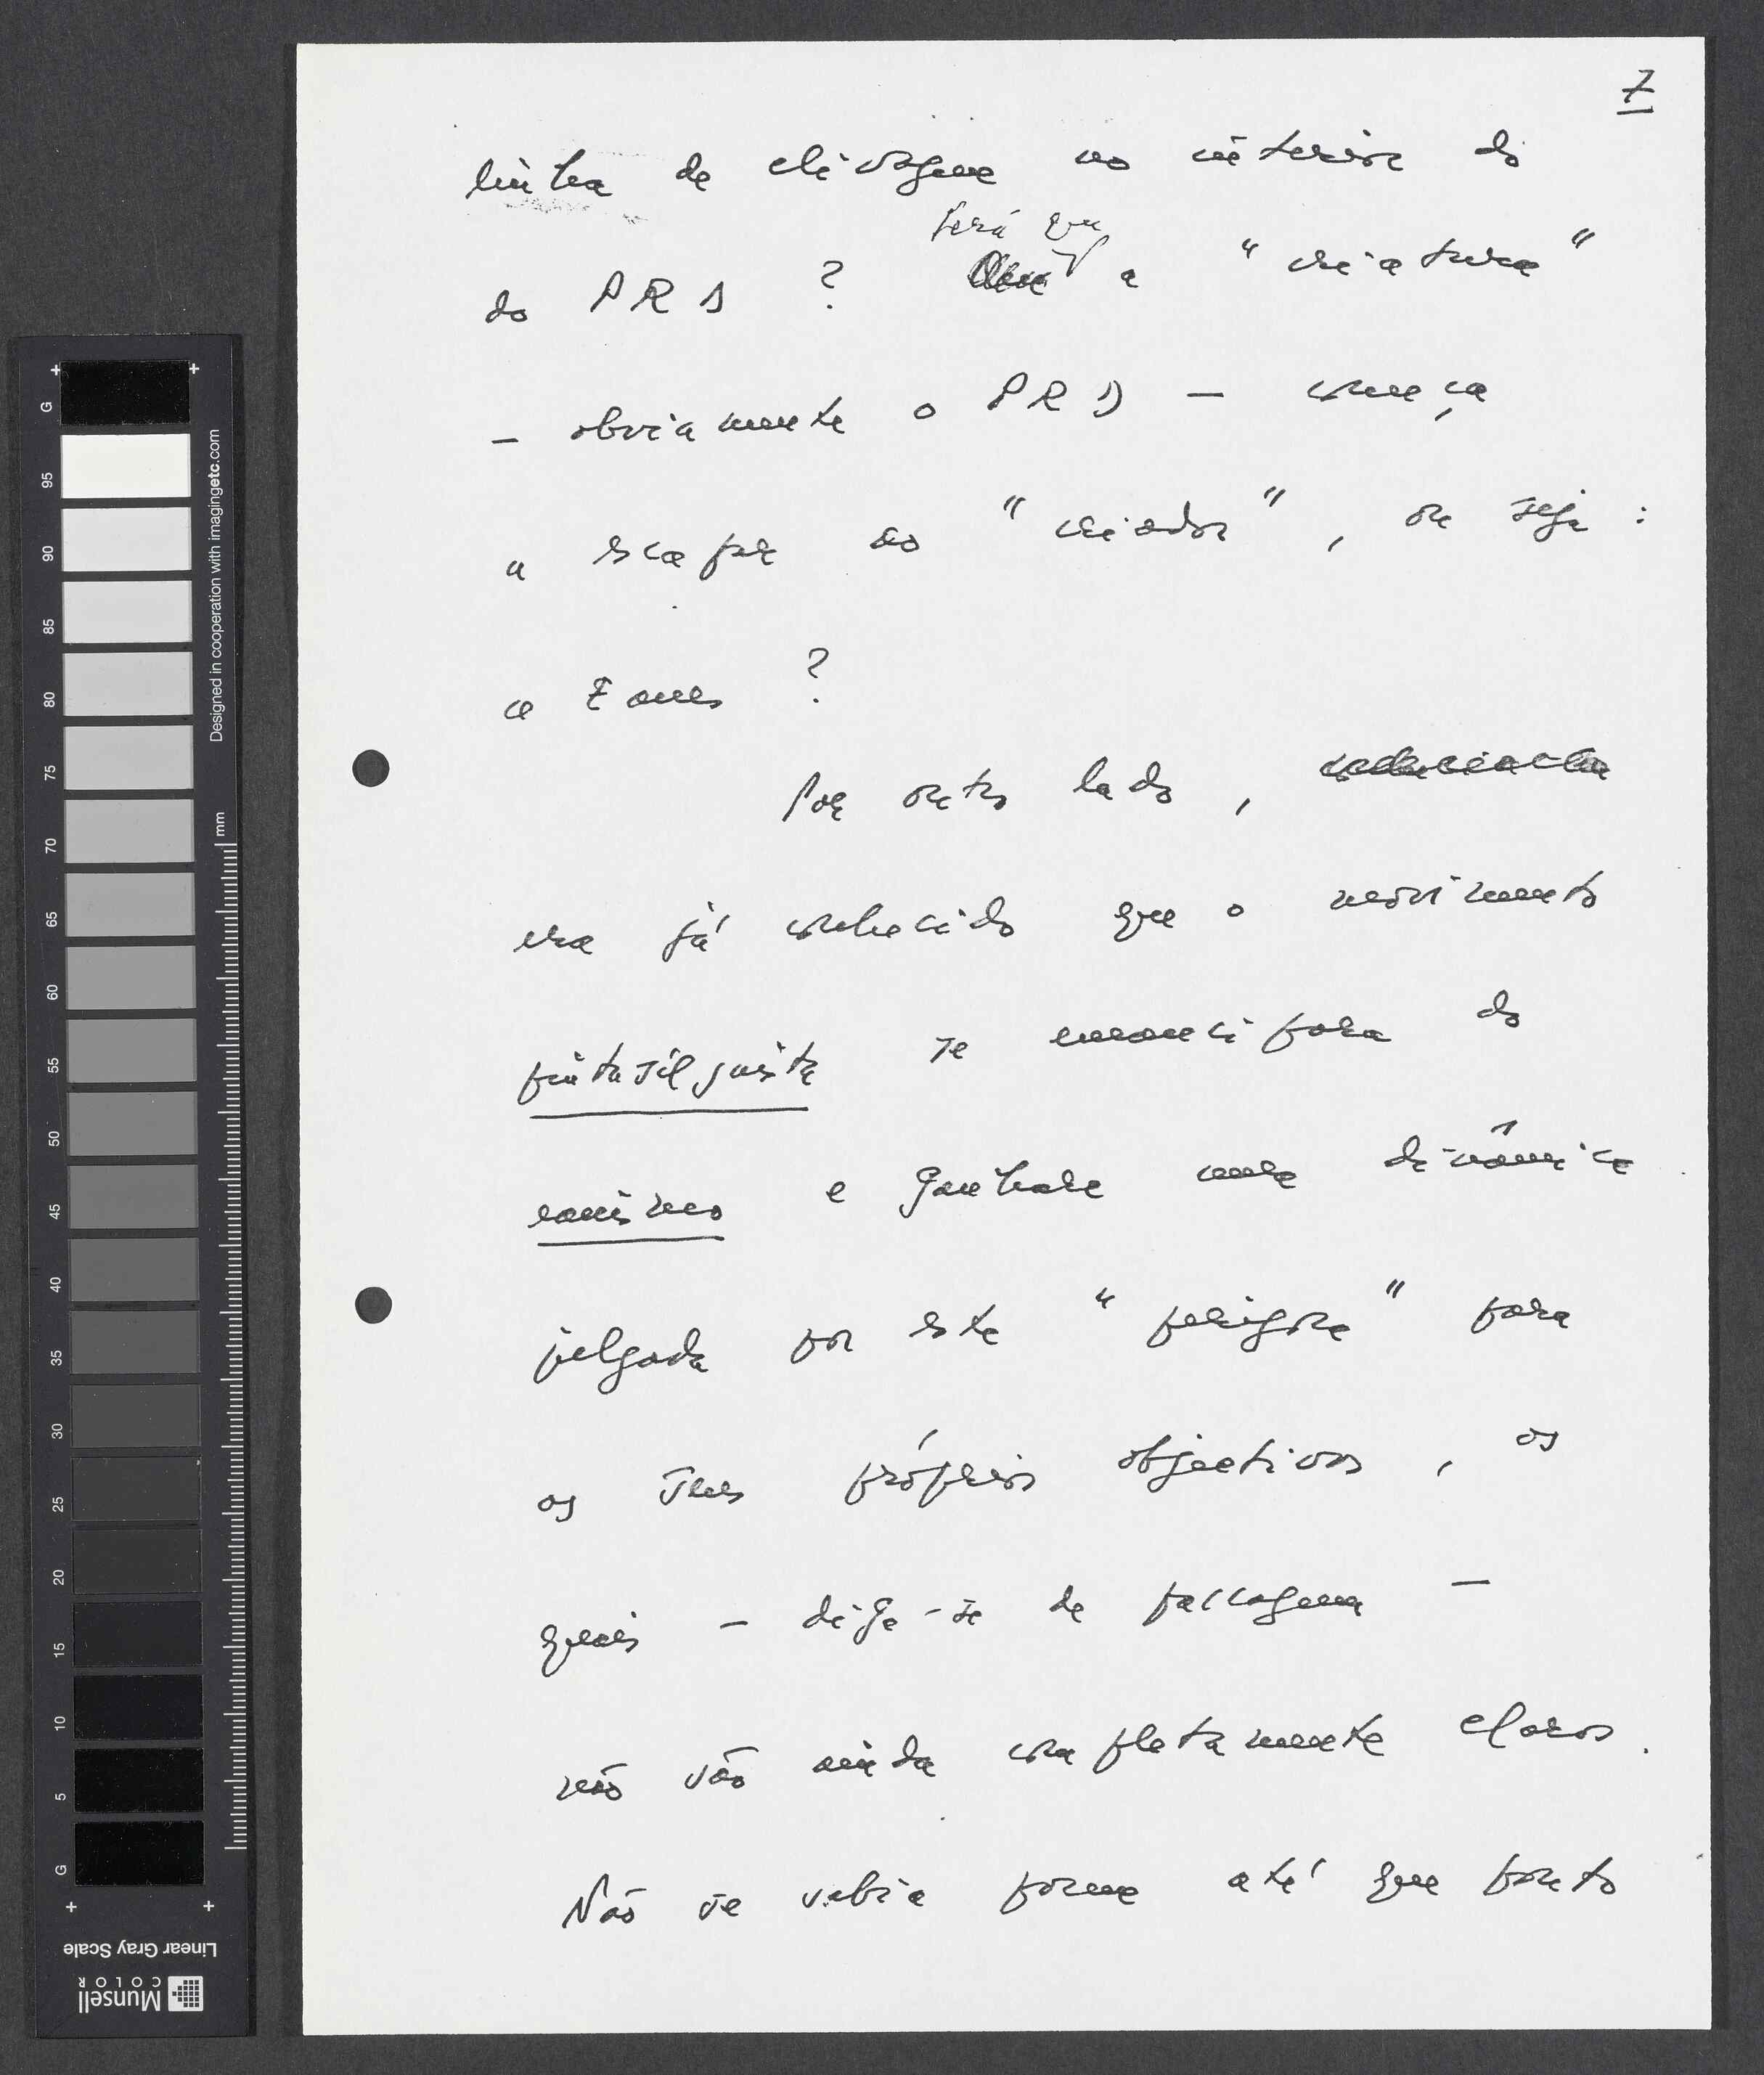 7
linha de clivagem no interior do
do PRD ? Será que a "criatura"
- obviamente o PRD - começa
a escapar ao "criador", ou seja :
a Eanes ?
Por outro lado,
era já conhecido que o movimento
pintasilguista se emancipara do
eanismo e ganhara uma dinâmica
julgada por este "perigosa" para
os seus próprios objectivos, os
quais - diga-se de passagem -
não são ainda completamente claros.
Não se sabia porém até que ponto
G
95
90
85
80
75
70
65
60
55
50
45
40
35
30
25
20
15
10
5
G
mm
Designed in cooperation with imagingetc.com
Linear Gray Scale
Munsell
COLOR